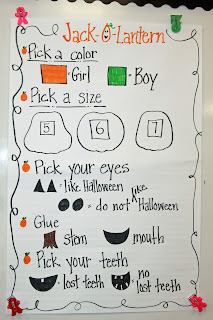 Jack-O-Lantern
Pick a color
= Girl = Boy
Pick a size
5 6 7
Pick your eyes
= like Halloween
= do not like Halloween
Glue
stem mouth
Pick your teeth
= lost teeth = no lost teeth